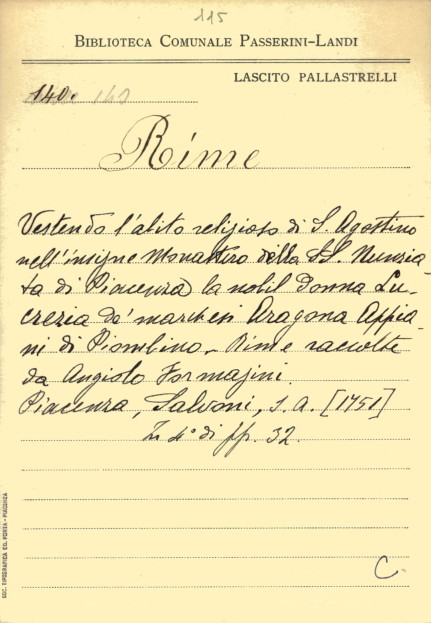 115
BIBLIOTECA COMUNALE PASSERINI-LANDI
LASCITO PALLASTRELLI
140. 140
Rime
Vestendo l'abito religioso di S. Agostino
nell'insigne Monastero della SS. Nunzia-
ta di Piacenza la nobil donna Lu-
crezia da' marchesi Aragona Appia-
ni di Piombino. Rime raccolte
da Angiolo Formajini.
Piacenza, Salvoni, s. a. [1751]
In 4° di pp. 32.
C.
SOC. TIPOGRAFICA ED. PORTA - PIACENZA